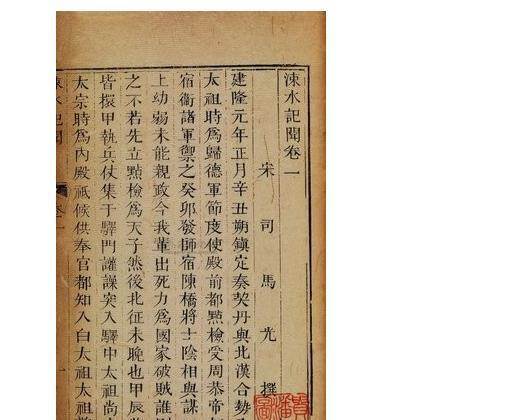 涑水記聞卷一
宋司馬光撰
建隆元年正月辛丑朔鎮定奏契丹與北漢合勢
太祖時爲歸德軍節度使殿前都點檢受周恭帝
宿衞諸軍禦之癸卯發師宿陳橋將士陰相與謀
上幼弱未能親政今我輩出死力爲國家破賊誰
之不若先立點檢爲天子然後北征未晚也甲辰
皆擐甲執兵仗集于驛門讙譟突入驛中太祖尚
太宗時爲內殿祗候供奉官都知入白太祖太祖
涑水記聞 卷一 一